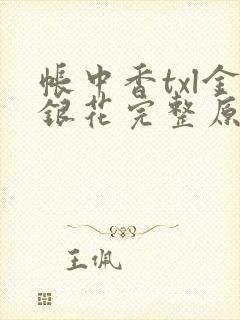 帳中香txl金
銀花完整原
王佩